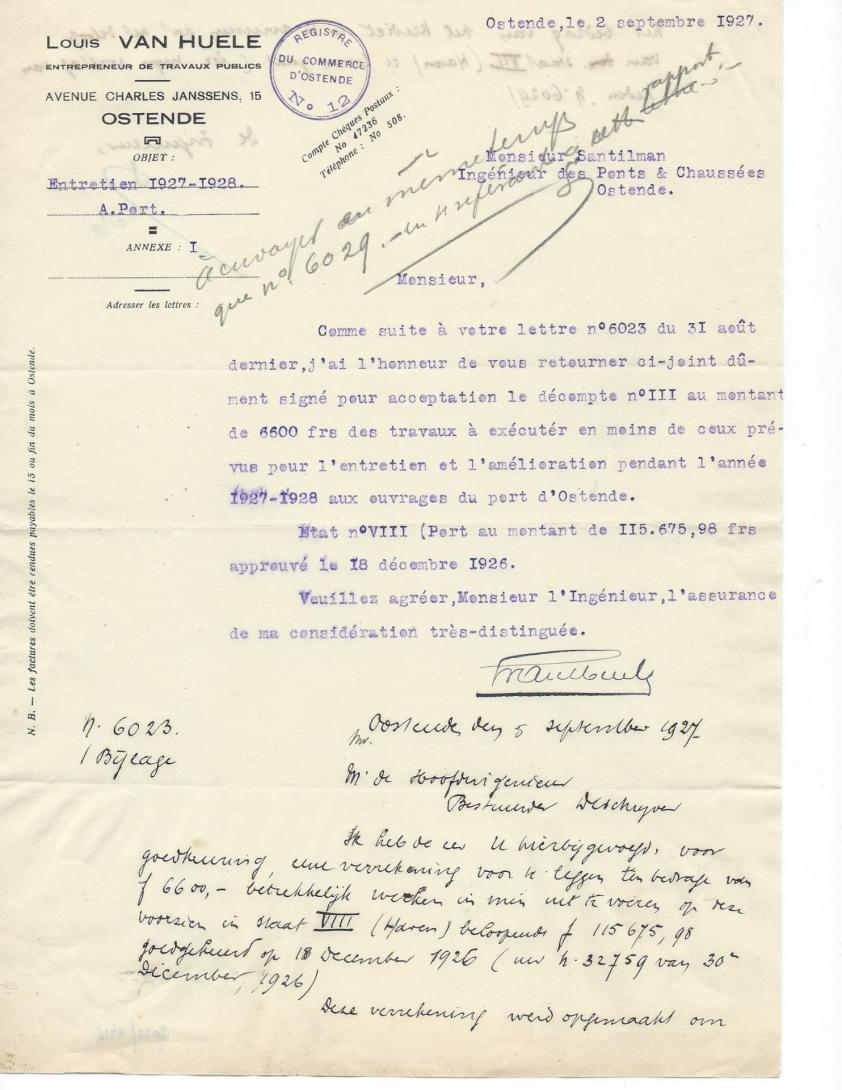 Ostende,le 2 septembre 1927.
Louis VAN HUELE
ENTREPRENEUR DE TRAVAUX PUBLICS
AVENUE CHARLES JANSSENS, 15
OSTENDE
REGISTRE
DU COMMERCE
D'OSTENDE
No 12
Compte Chèques Postaux :
No 47236
Téléphone : No 508.
OBJET :
Entretien I927-I928.
A.Port.
ANNEXE : I
Adresser les lettres :
à envoyer en même temps
que n° 6029.- en référant à cette rapport.
Monsieur Santilman
Ingénieur des Ponts & Chaussées
Ostende.
Monsieur,
Comme suite à votre lettre n°6023 du 3I août
dernier,j'ai l'honneur de vous retourner ci-joint dû-
ment signé pour acceptation le décompte n°III au montant
de 6600 frs des travaux à exécutér en moins de ceux pré-
vus pour l'entretien et l'amélioration pendant l'année
I927-I928 aux ouvrages du port d'Ostende.
Etat n°VIII (Port au montant de II5.675,98 frs
approuvé le I8 décembre I926.
Veuillez agréer,Monsieur l'Ingénieur,l'assurance
de ma considération très-distinguée.
N. B. — Les factures doivent être rendues payables le 15 ou fin du mois à Ostende.
N. 6023.
1 Bijlage
Oostende den 5 september 1927
Mr. de Hoofdingenieur
Bestuurder Deschryver
Ik heb de eer U hierbijgevoegd, voor
goedkeuring, eene verrekening voor te leggen ten bedrage van
f 6600,- betrekkelijk werken in min uit te voeren op deze
voorzien in staat VIII (Haven) beloopende f 115675,98
goedgekeurd op 18 December 1926 (uw n. 32759 van 30n
December 1926)
Deze verrekening werd opgemaakt om